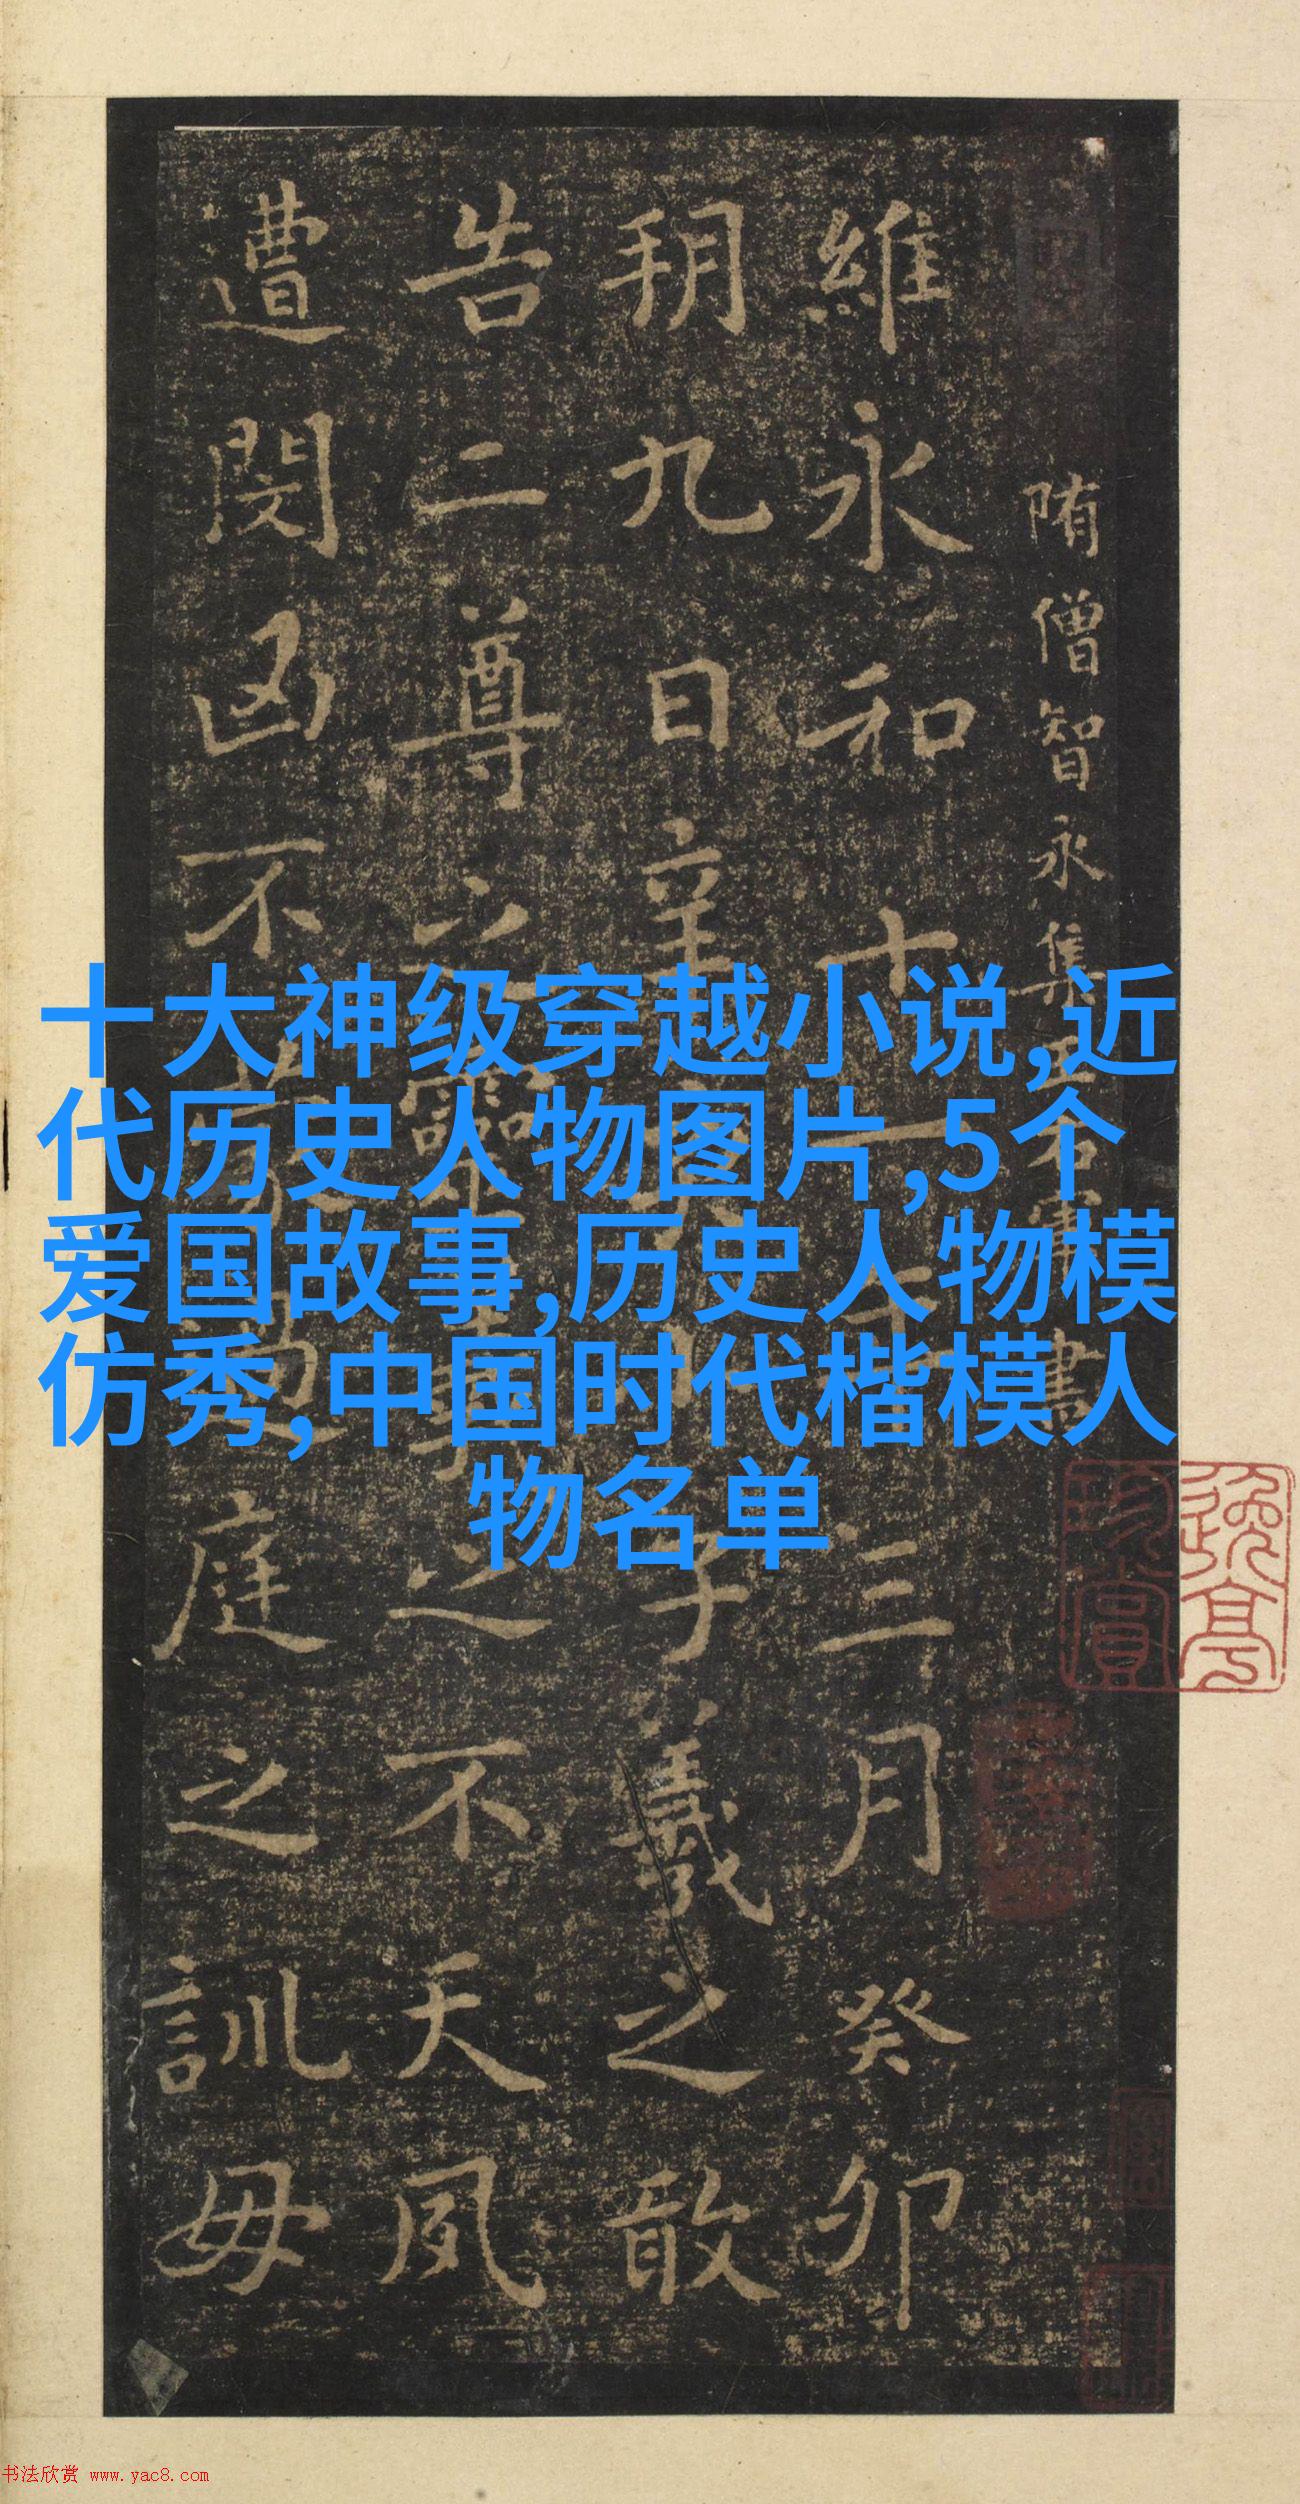 十大神级穿越小说,近
代历史人物图片,5个
爱国故事,历史人物模
仿秀,中国时代楷模人
物名单
隋僧智永集
書
維永和十一年三月癸卯
朔九日辛
子羲之敢
告二尊之靈
之不天夙
遭閔凶不蒙過庭之訓毋
书法欣赏 www.yac8.com